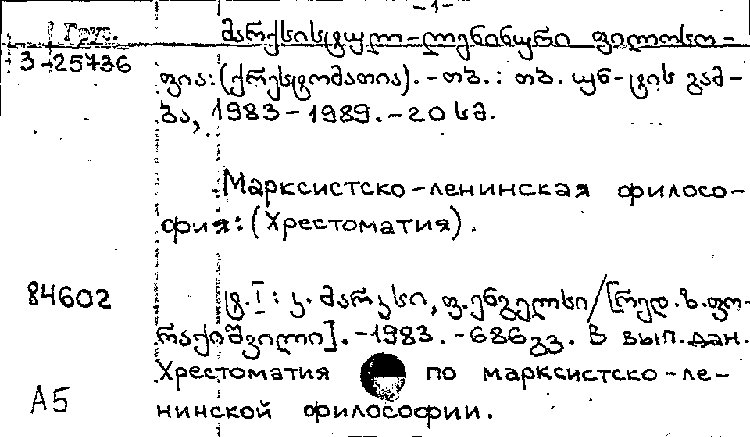 -1-
Груз. მარქსისტულ-ლენინური ფილოსო-
3-25736 ფია: (ქრესტომათია). - თბ.: თბ. უნ-ტის გამ-
ბა, 1983-1989. - 20 სმ.
Марксистско-ленинская филосо-
фия: (Хрестоматия).
84602 ტ. I: კ. მარქსი, ფ. ენგელსი / [რედ. ზ. ფო-
რაქიშვილი]. - 1983. - 686 გვ. В вып. дан.
Хрестоматия по марксистско-ле-
А5 нинской философии.